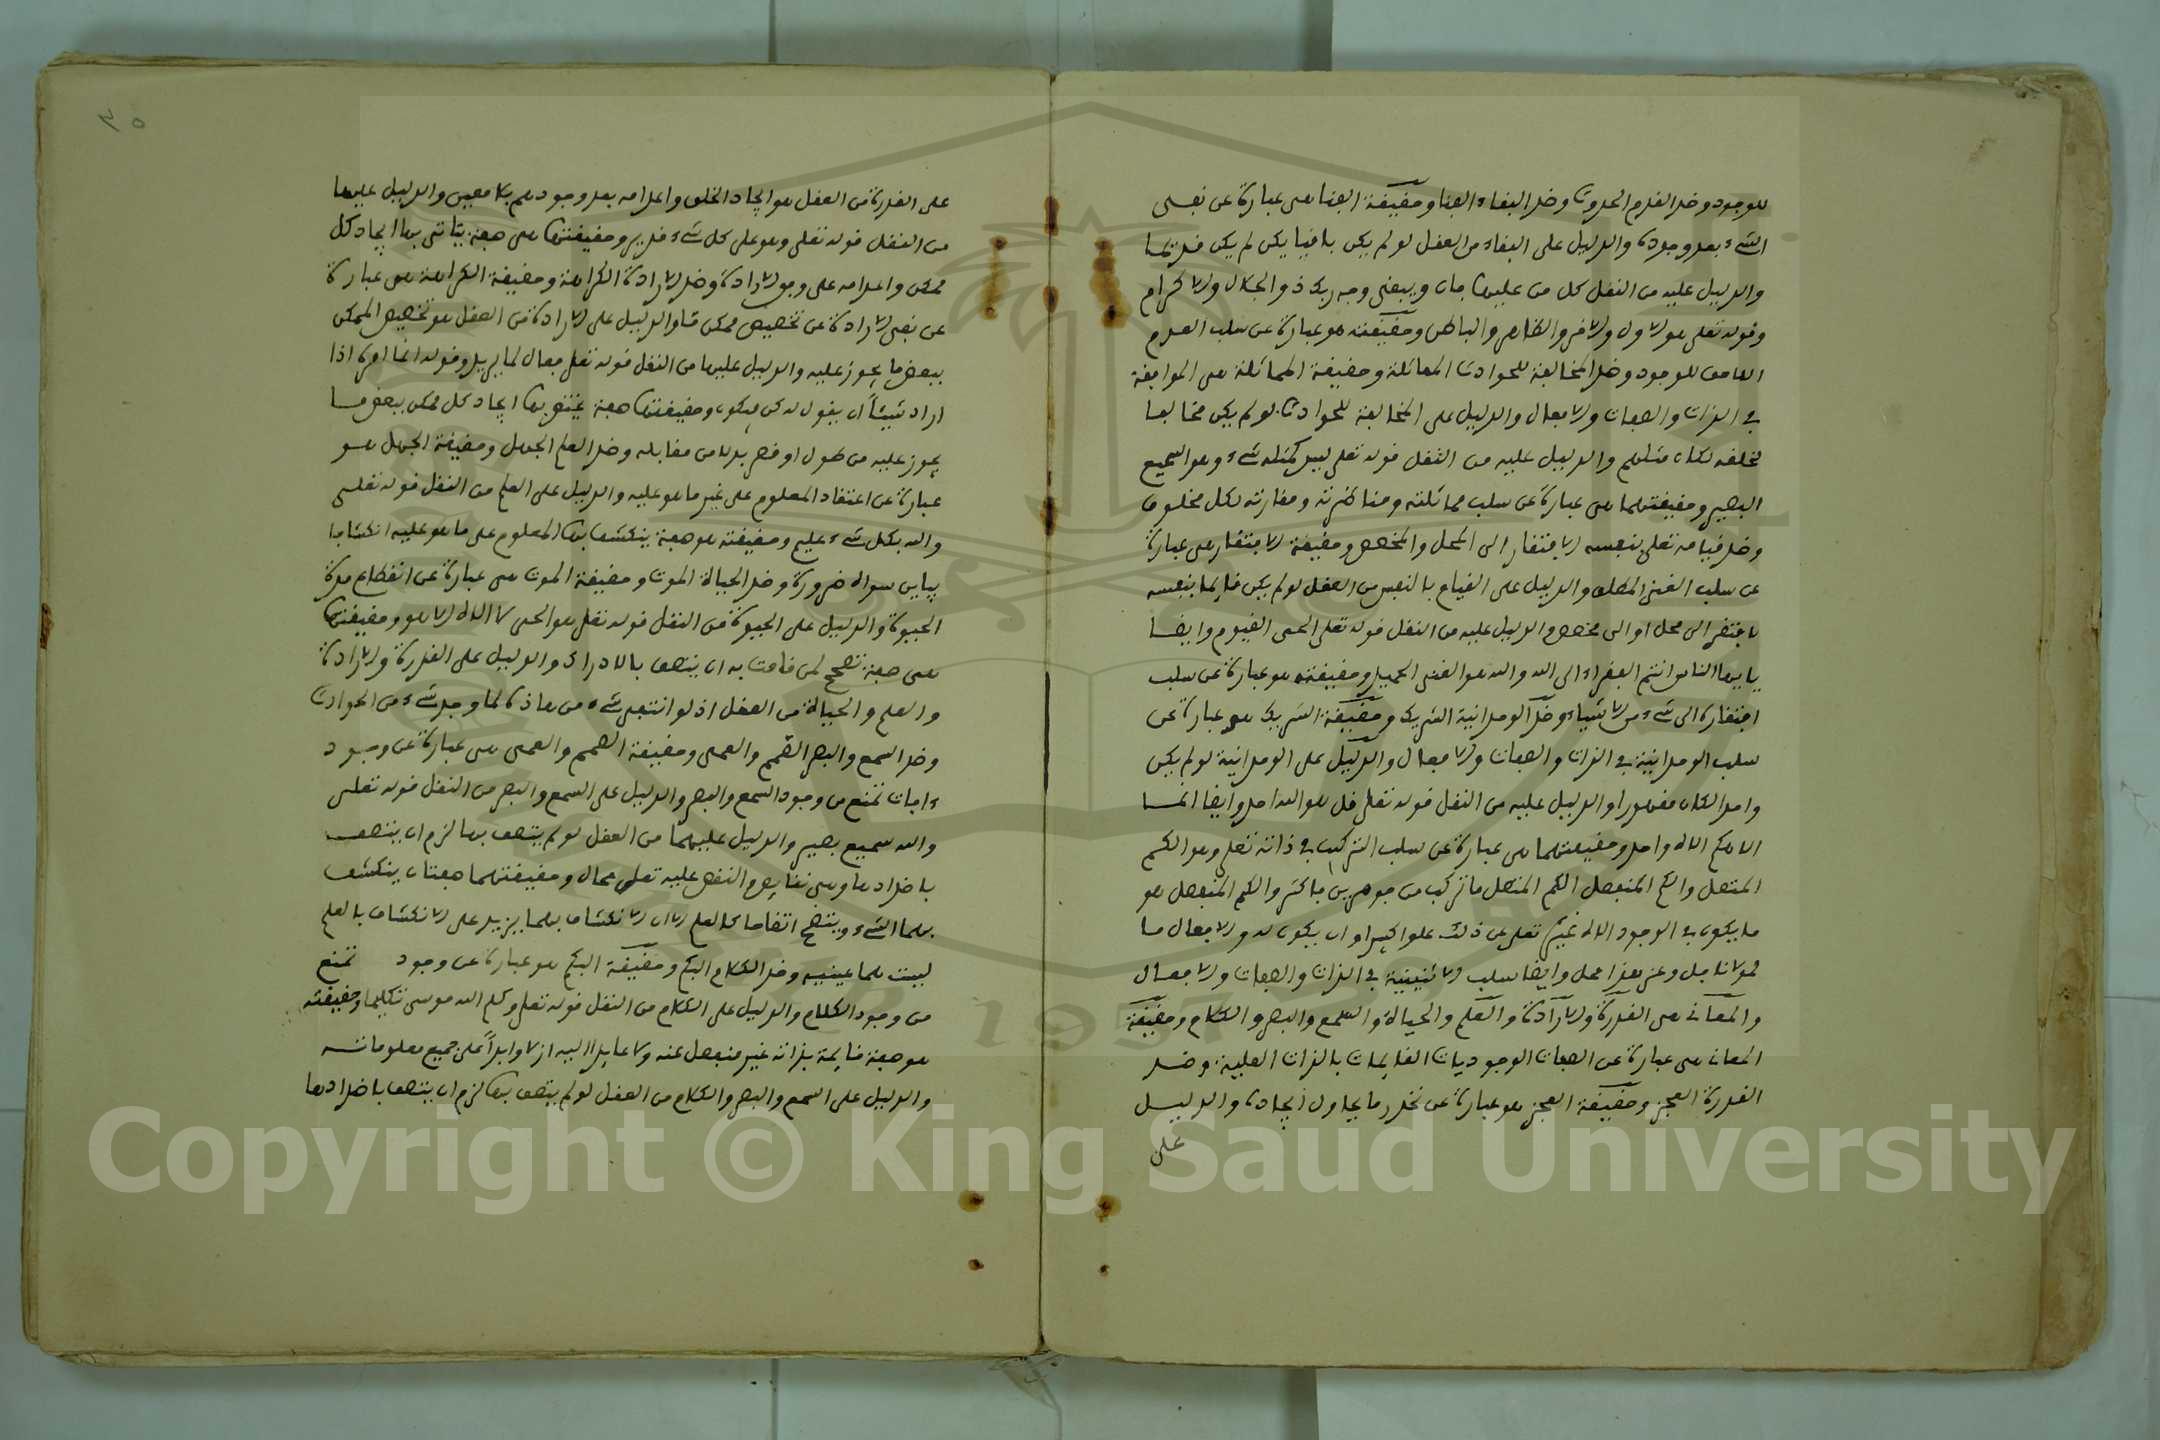 للوجود وضد القدم الحدوث وضد البقاء الفنا وحقيقة الفنا هي عبارة عن نفي
الشيء بعد وجوده والدليل على البقاء من العقل لو لم يكن باقيا يكن لم يكن قديما
والدليل عليه من النقل كل من عليها فان ويبقى وجه ربك ذو الجلال والاكرام
وقوله تعلى هو الاول والاخر والظاهر والباطن وحقيقته هو عبارة عن سلب العدم
اللاحق للوجود وضد المخالفة للحوادث المماثلة وحقيقة المماثلة هي الموافقة
في الذات والصفات والافعال والدليل على المخالفة للحوادث لو لم يكن مخالفا
لخلقه لكان مثلهم والدليل عليه من النقل قوله تعلى ليس كمثله شيء وهو السميع
البصير وحقيقتهما هي عبارة عن سلب مماثلته ومناظرته ومقارنته لكل مخلوق
وضد قيامه تعلى بنفسه الافتقار الى المحل والمخصص وحقيقة الافتقار هي عبارة
عن سلب الغنى المطلق والدليل على القيام بالنفس من العقل لو لم يكن قايما بنفسه
لافتقر الى محل او الى مخصص والدليل عليه من النقل قوله تعلى الحي القيوم وايضا
يا ييها الناس انتم الفقراء الى الله والله هو الغني الحميد وحقيقته هو عبارة عن سلب
افتقاره الى شيء من الاشياء وضد الوحدانية الشريك وحقيقة الشريك هو عبارة عن
سلب الوحدانية في الذات والصفات والافعال والدليل على الوحدانية لو لم يكن
واحدا لكان مقهورا والدليل عليه من النقل قوله تعلى قل هو الله احد وايضا انما
الاهكم الاه واحد وحقيقتهما هي عبارة عن سلب التركيب في ذاته تعلى وهو الكم
المتصل والكم المنفصل الكم المتصل ما تركب من جوهرين فاكثر والكم المنفصل هو
ما يكون في الوجود الاه غيره تعلى عن ذلك علوا كبيرا او ان يكون له والافعال ما
لمولانا جل وعز بعزا محل وايضا سلب الاثنينية في الذات والصفات والافعال
والمعاني هي القدرة والارادة والعلم والحياة والسمع والبصر والكلام وحقيقة
المعاني هي عبارة عن الصفات الوجوديات القايمات بالذات العلية وضد
القدرة العجز وحقيقة العجز هو عبارة عن تعذر ما يحاول ايجاده والدليل
على
٣٥
على القدرة من العقل هو ايجاد الخلق واعدامه بعد وجودهم بلا معين والدليل عليها
من النقل قوله تعلى وهو على كل شيء قدير وحقيقتها هي صفة يتاتى بها ايجاد كل
ممكن واعدامه على وفق الارادة وضد الارادة الكراهة وحقيقة الكراهة هي عبارة
عن نفي الارادة عن تخصيص ممكن ما والدليل على الارادة من العقل هو تخصيص الممكن
ببعض ما يجوز عليه والدليل عليها من النقل قوله تعلى فعال لما يريد وقوله انما امره اذا
اراد شيئا ان يقول له كن فيكون وحقيقتها صفة يختص بها ايجاد كل ممكن ببعض ما
يجوز عليه من طول او قصر بدلا من مقابله وضد العلم الجهل وحقيقة الجهل هو
عبارة عن اعتقاد المعلوم على غير ما هو عليه والدليل على العلم من النقل قوله تعلى
والله بكل شيء عليم وحقيقته هو صفة ينكشف بها المعلوم على ما هو عليه انكشافا
يباين سواه ضرورة وضد الحياة الموت وحقيقة الموت هي عبارة عن انقطاع مدة
الحيوة والدليل على الحيوة من النقل قوله تعلى هو الحي لا الاه الا هو وحقيقتها
هي صفة تصحح لمن قامت به ان يتصف بالادراك والدليل على القدرة والارادة
والعلم والحياة من العقل اذ لو انتفى شيء من هاذه لما وجد شيء من الحوادث
وضد السمع والبصر الصمم والعمى وحقيقة الصمم والعمى هي عبارة عن وجود
ءافات تمنع من وجود السمع والبصر والدليل على السمع والبصر من النقل قوله تعلى
والله سميع بصير والدليل عليهما من العقل لو لم يتصف بها لزم ان يتصف
باضدادها وهي نقايص والنقص عليه تعلى محال وحقيقتهما صفتان ينكشف
بهما الشيء ويتضح اتضاحا كالعلم الا ان الانكشاف بهما يزيد على الانكشاف بالعلم
ليست هما عينيه وضد الكلام البكم وحقيقة البكم هو عبارة عن وجود تمنع
من وجود الكلام والدليل على الكلام من النقل قوله تعلى وكلم الله موسى تكليما وحقيقته
هو صفة قايمة بذاته غير منفصل عنه ولا عايدا اليه ازلا وابدا على جميع معلوماته
والدليل على السمع والبصر والكلام من العقل لو لم يتصف بها لزم ان يتصف باضدادها
Copyright © King Saud University
1957